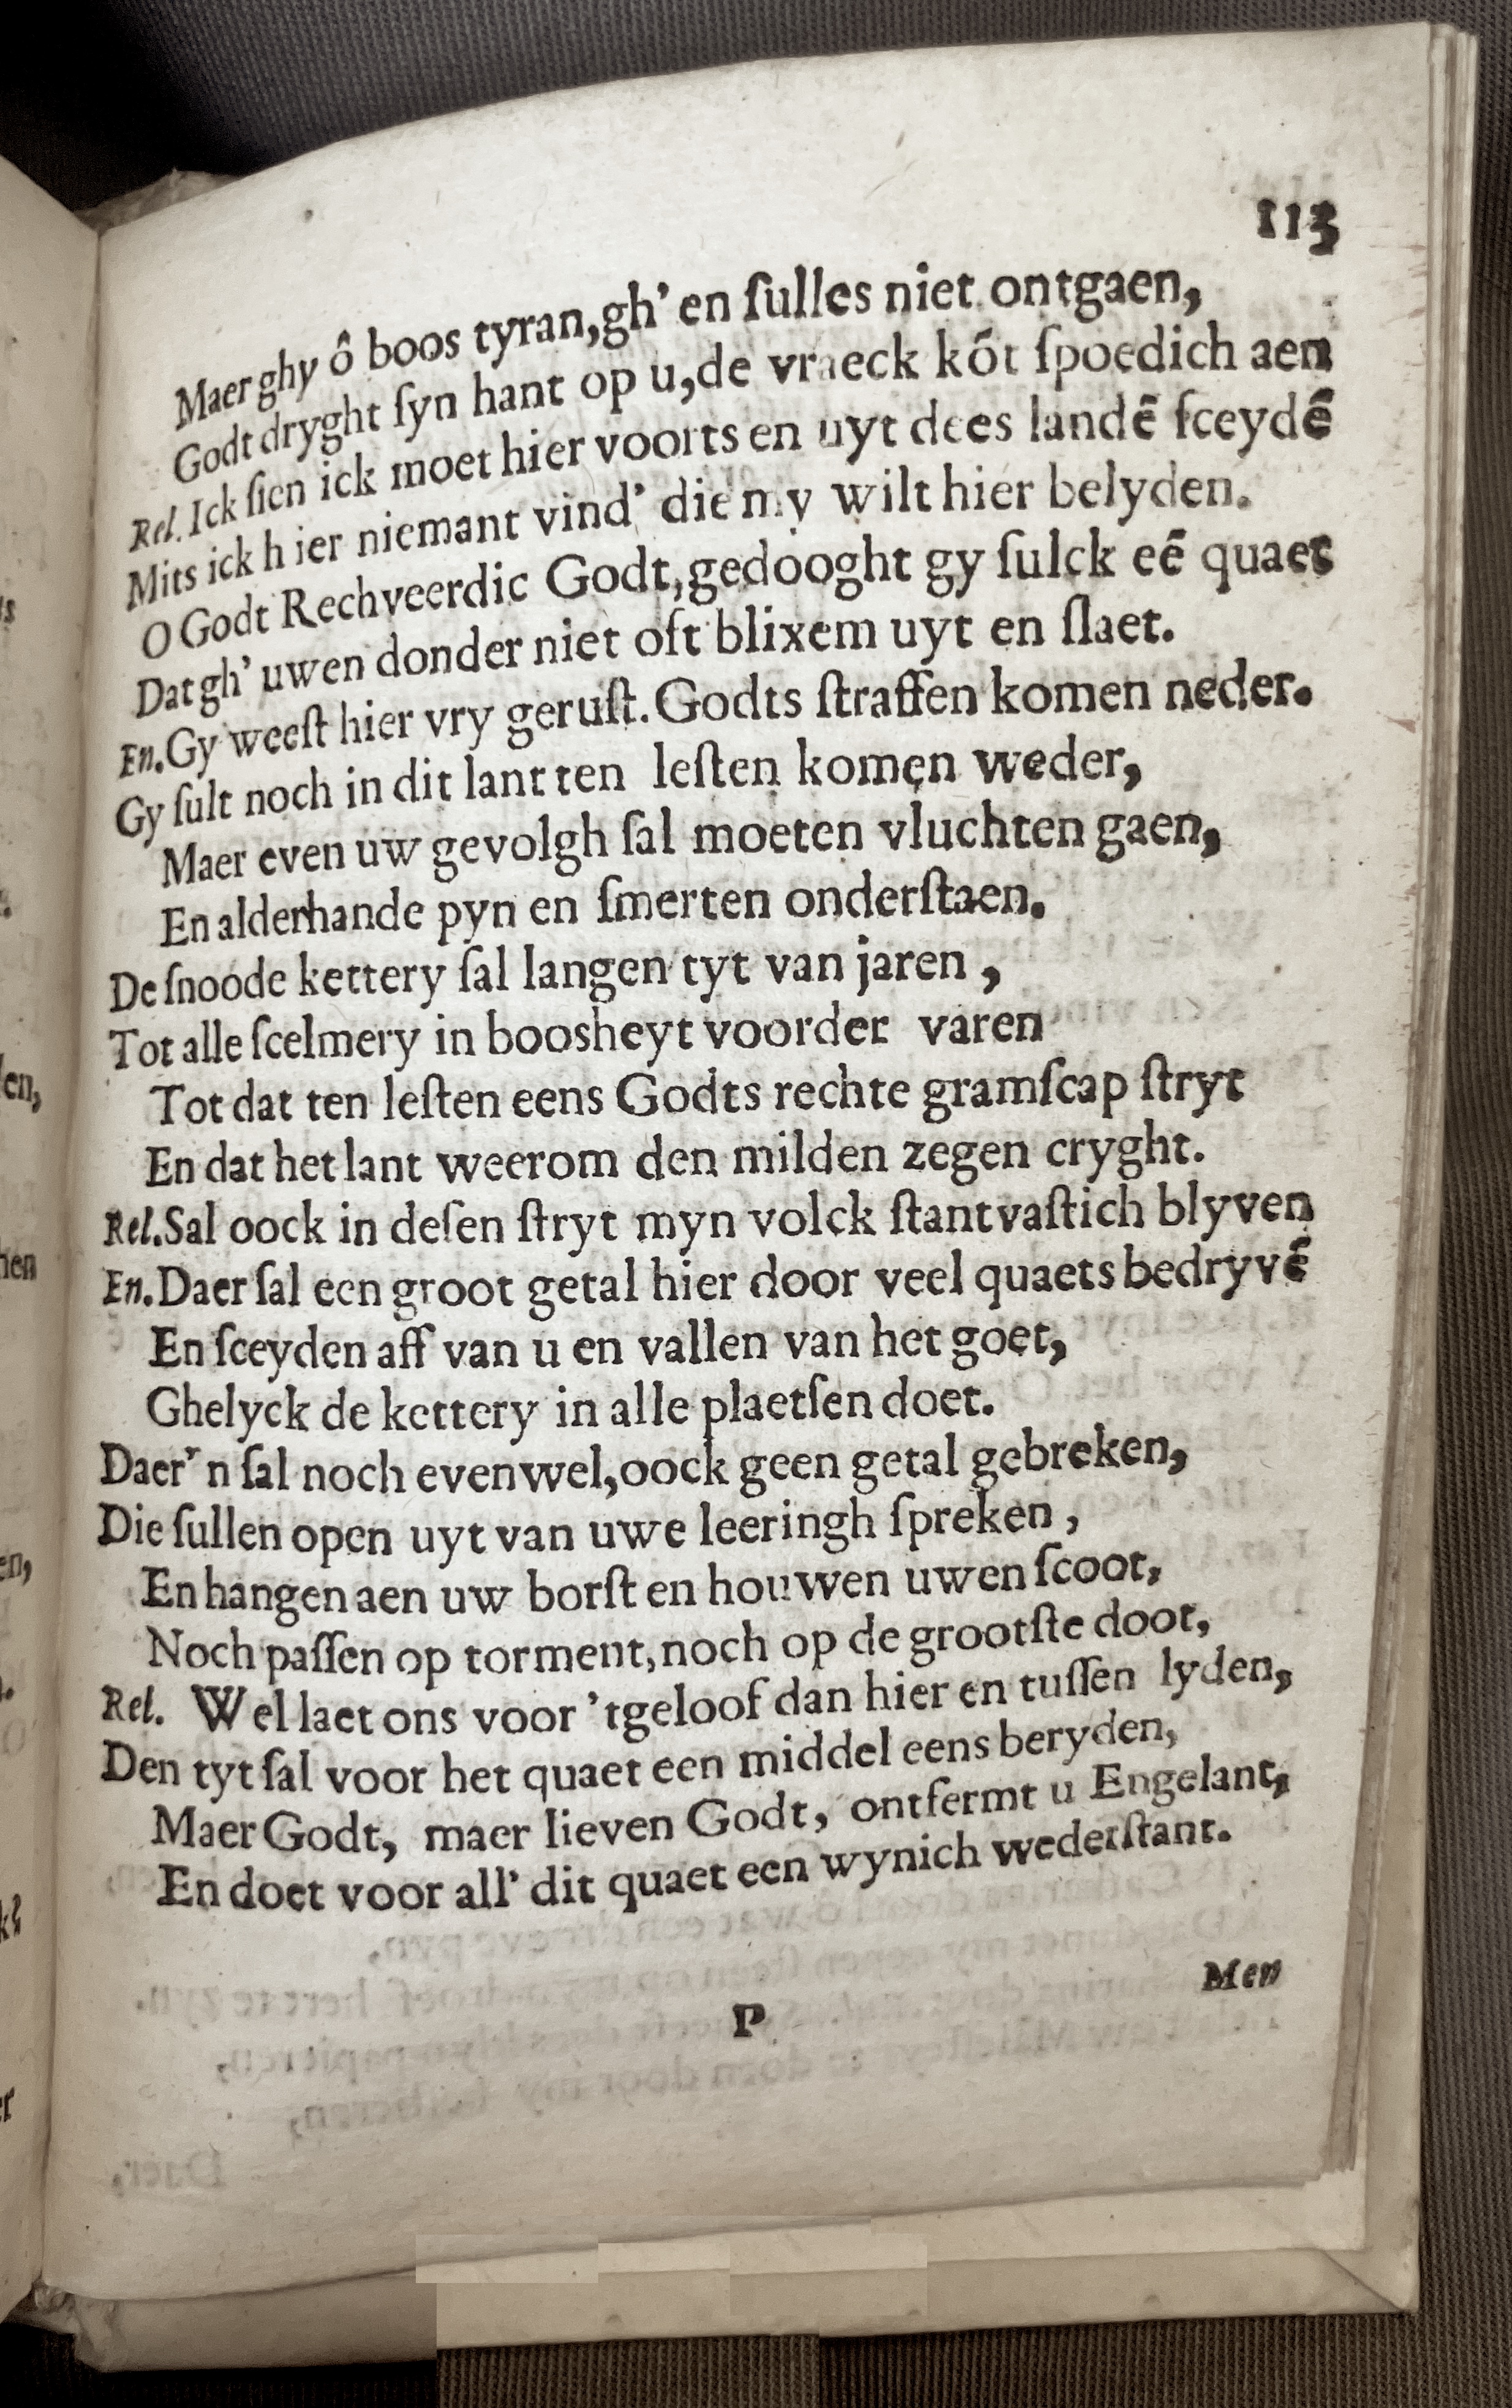 113
Maer ghy ô boos tyran, gh' en ſulles niet ontgaen,
Godt dryght ſyn hant op u, de vraeck kōt ſpoedich aen
Rel. Ick ſien ick moet hier voorts en uyt dees landē ſceydē
Mits ick h ier niemant vind' die my wilt hier belyden.
O Godt Rechveerdic Godt, gedooght gy ſulck eē quaet
Dat gh' uwen donder niet oft blixem uyt en ſlaet.
En. Gy weeſt hier vry geruſt. Godts ſtraffen komen neder.
Gy ſult noch in dit lant ten leſten komen weder,
Maer even uw gevolgh ſal moeten vluchten gaen,
En alderhande pyn en ſmerten onderſtaen.
De ſnoode kettery ſal langen tyt van jaren,
Tot alle ſcelmery in boosheyt voorder varen
Tot dat ten leſten eens Godts rechte gramſcap ſtryt
En dat het lant weerom den milden zegen cryght.
Rel. Sal oock in deſen ſtryt myn volck ſtantvaſtich blyven
En. Daer ſal een groot getal hier door veel quaets bedryvē
En ſceyden aff van u en vallen van het goet,
Ghelyck de kettery in alle plaetſen doet.
Daer' n ſal noch evenwel, oock geen getal gebreken,
Die ſullen open uyt van uwe leeringh ſpreken,
En hangen aen uw borſt en houwen uwen ſcoot,
Noch paſſen op torment, noch op de grootſte doot,
Rel. Wel laet ons voor 'tgeloof dan hier en tuſſen lyden,
Den tyt ſal voor het quaet een middel eens beryden,
Maer Godt, maer lieven Godt, ontfermt u Engelant,
En doet voor all' dit quaet een wynich wederſtant.
P
Men